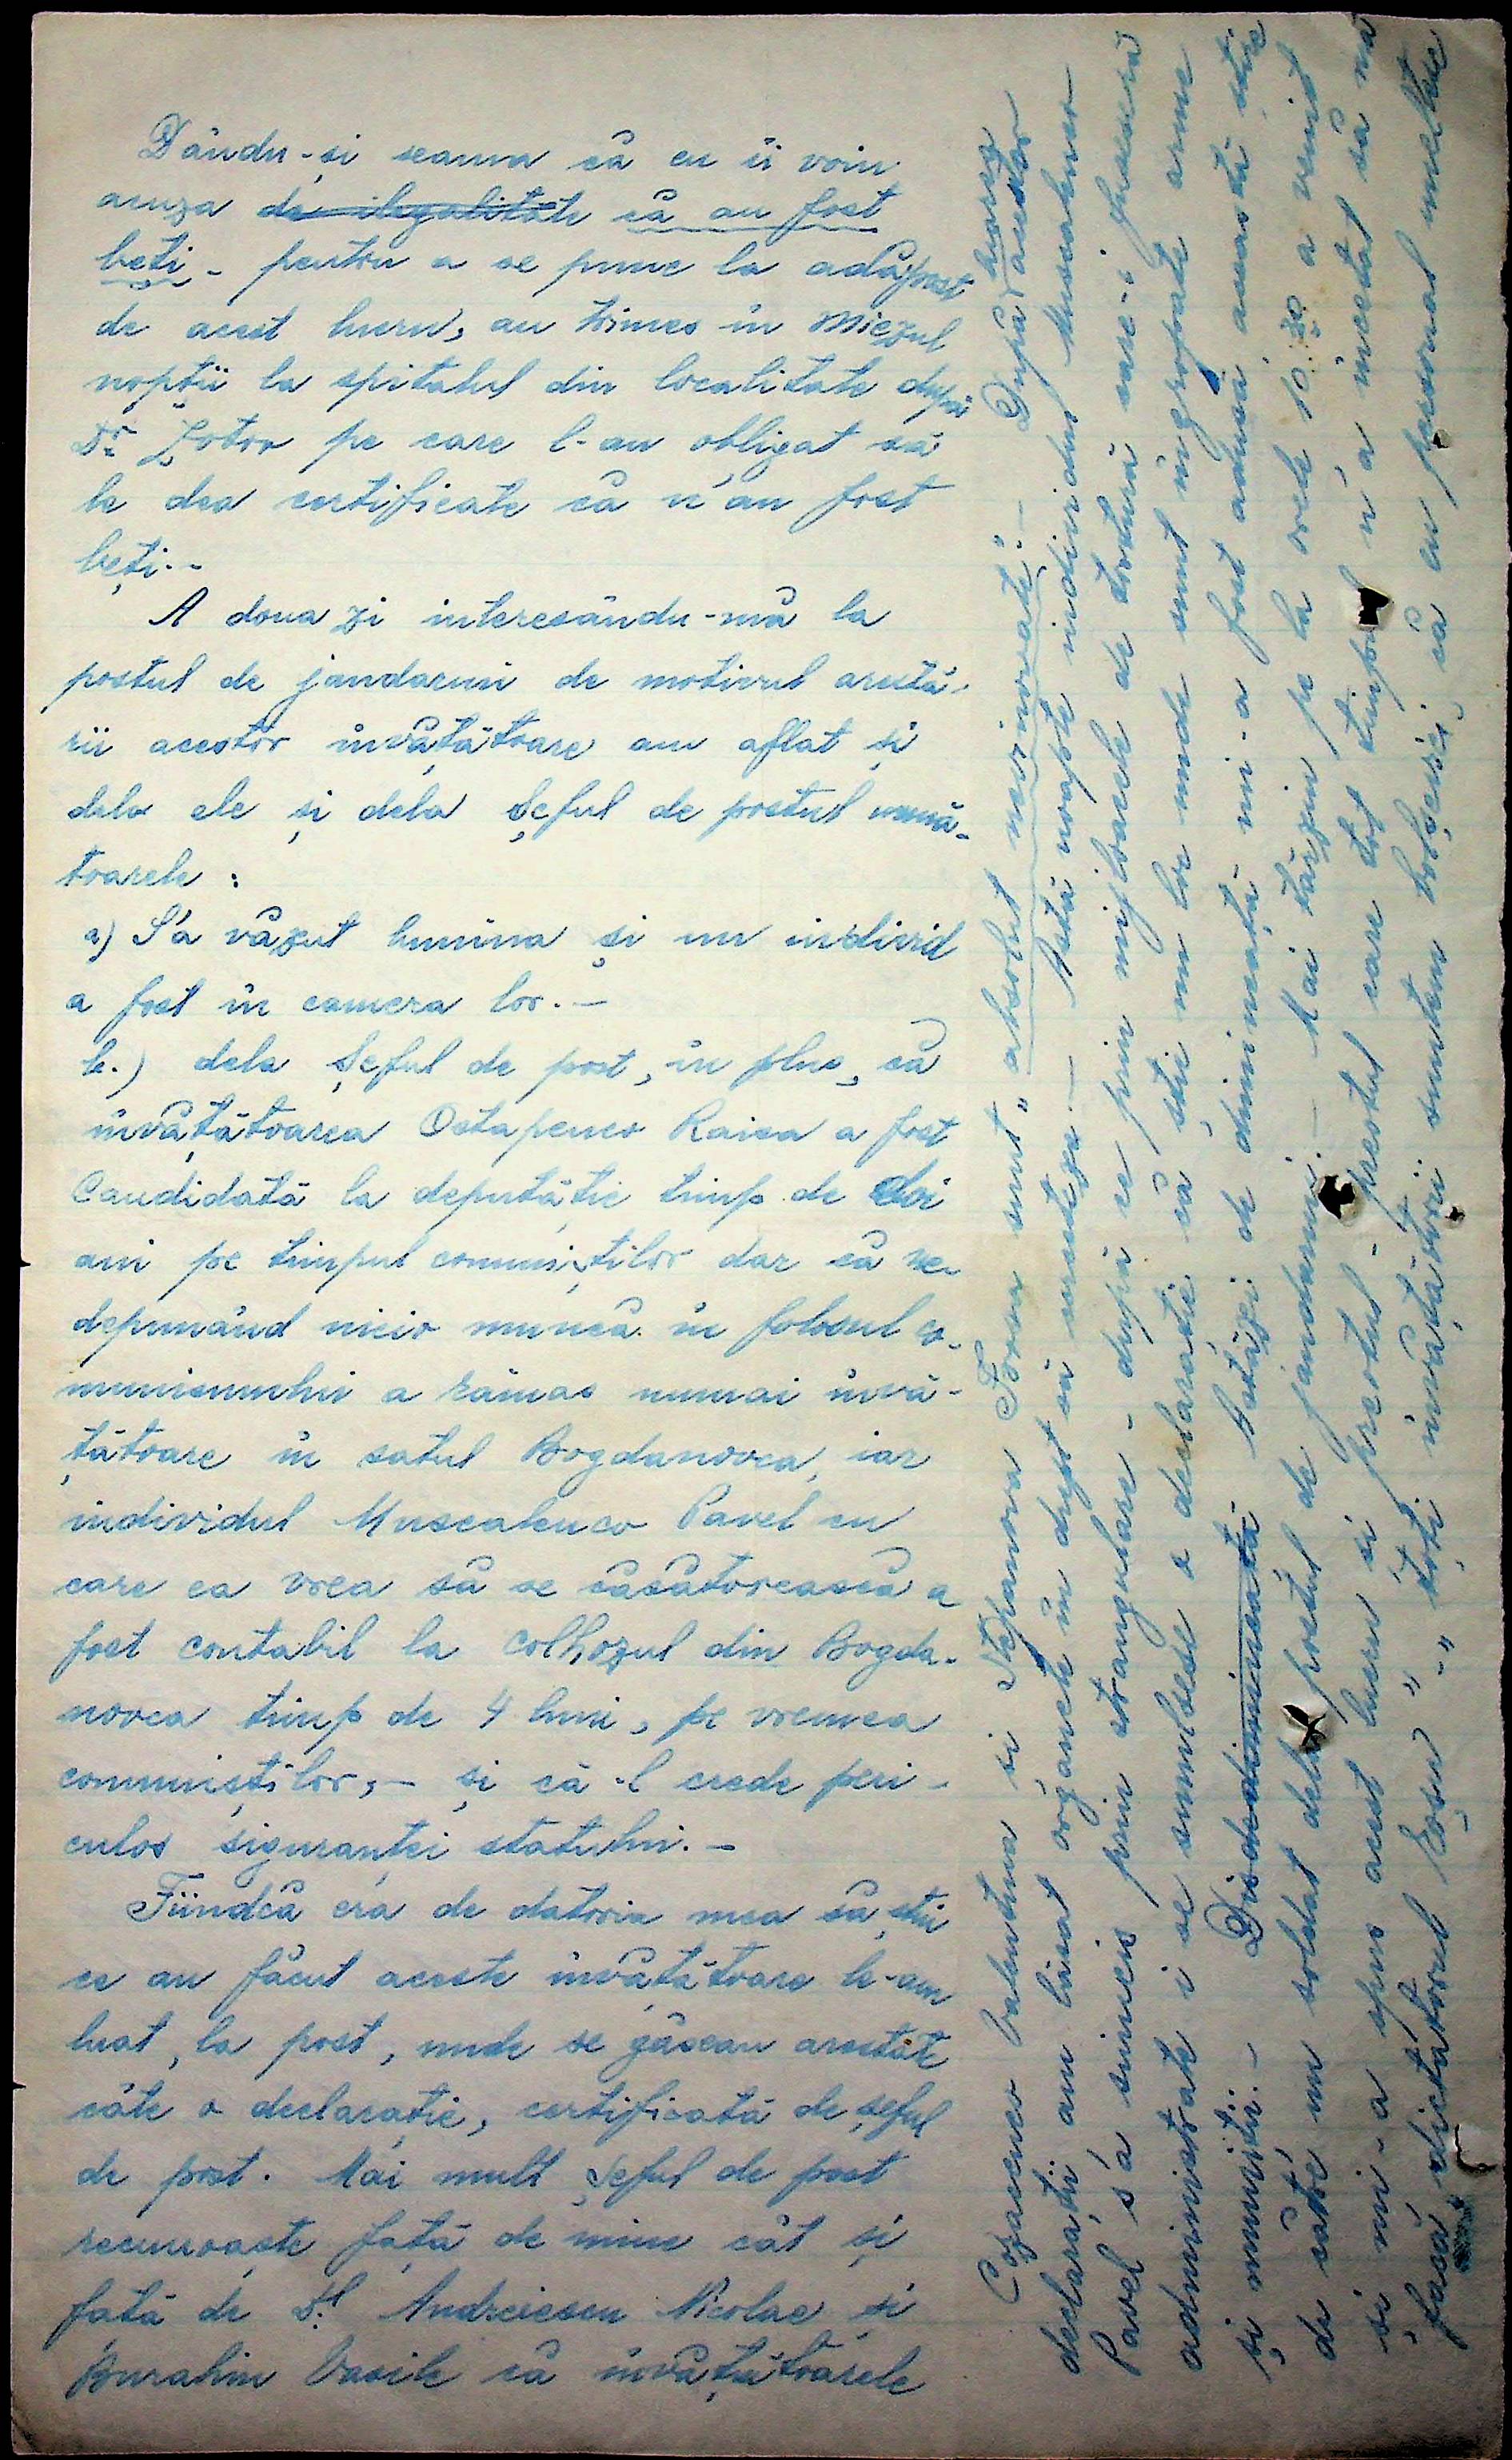 Dându-și seama că eu îi voiu
acuza de ilegalităte că au fost
beți - pentru a se pune la adăpost
de acest lucru, au trimes in miezul
nopții la spitalul din localitate după
Dr. Zotov pe care l-au obligat să
le dea certificate că n'au fost
beți.-
A doua zi interesându-mă la
postul de jandarmi de motivul arestă-
rii acestor învățătoare am aflat și
dela ele și dela Șeful de postul urmă-
toarele:
a) S'a văzut lumina și un individ
a fost în camera lor. -
b.) dela Șeful de post, în plus, că
învățătoarea Ostapenco Raisa a fost
Candidată la deputăție timp de doi
ani pe timpul comuniștilor dar că ne-
depunând nicio muncă în folosul co-
munismului a rămas numai învă-
țătoare în satul Bogdanovca, iar
individul Muscalenco Pavel cu
care ea vrea să se căsătorească a
fost contabil la colhozul din Bogda-
novca timp de 4 luni, pe vremea
comuniștilor, - și că-l crede peri-
culos siguranței statului. -
Fiindcă era de datoria mea să știu
ce au făcut aceste învățătoare le-am
luat, la post, unde se găseau arestate
câte o declarație, certificată de șeful
de post. Mai mult șeful de post
recunoaște față de mine cât și
față de Dl. Andreiescu Nicolae și
Burahin Vasile că învățătoarele
Cozacenco Valentina și Stepanova Torsa sunt "absolut nevinovate".- După luarea acestor
declarații am lăsat organele în drept să cerceteze. - Astă noapte individul Muscalenco
Pavel s'a sinucis prin strangulare - după ce prin mijloacele de tortură care-i fuseseră
administrate i se smulsese o declarație că știe un loc unde sunt îngropate arme
și muniții. - Disdedimineată Astăzi de dimineață mi-a fost adusă această știre
de către un soldat dela postul de jandarmi. - Mai târziu pe la orele 10.30 a venit
și mi-a spus acest lucru și preotul - preotul care tot timpul n'a încetat să mă
facă dictatorul Roșu" -" toți învățători suntem bolșevici și că eu personal unelte